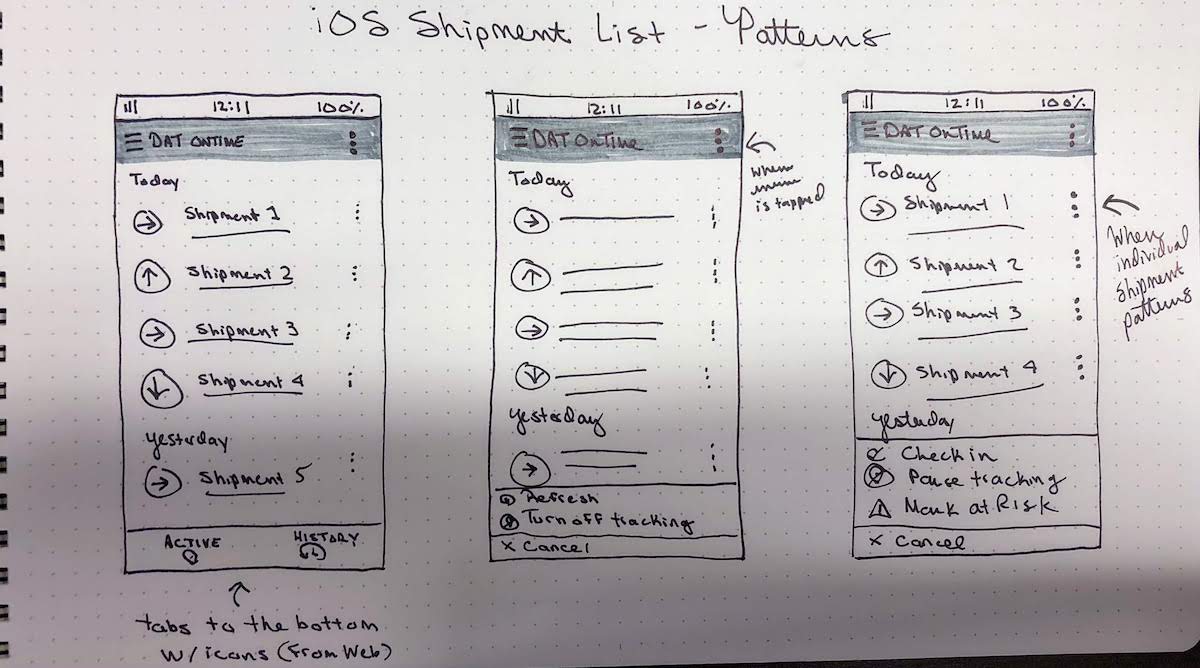 iOS Shipment List - Patterns
12:11 100%
DAT ONTIME
Today
Shipment 1
Shipment 2
Shipment 3
Shipment 4
yesterday
Shipment 5
ACTIVE HISTORY
tabs to the bottom
w/icons (from web)
12:11 100%
DAT OnTime
Today
Yesterday
Refresh
Turn off tracking
x Cancel
when
menu
is tapped
12:11 100%
DAT OnTime
Today
Shipment 1
Shipment 2
Shipment 3
Shipment 4
yesterday
Check in
Pause tracking
Mark at Risk
x Cancel
When
individual
shipment
patterns